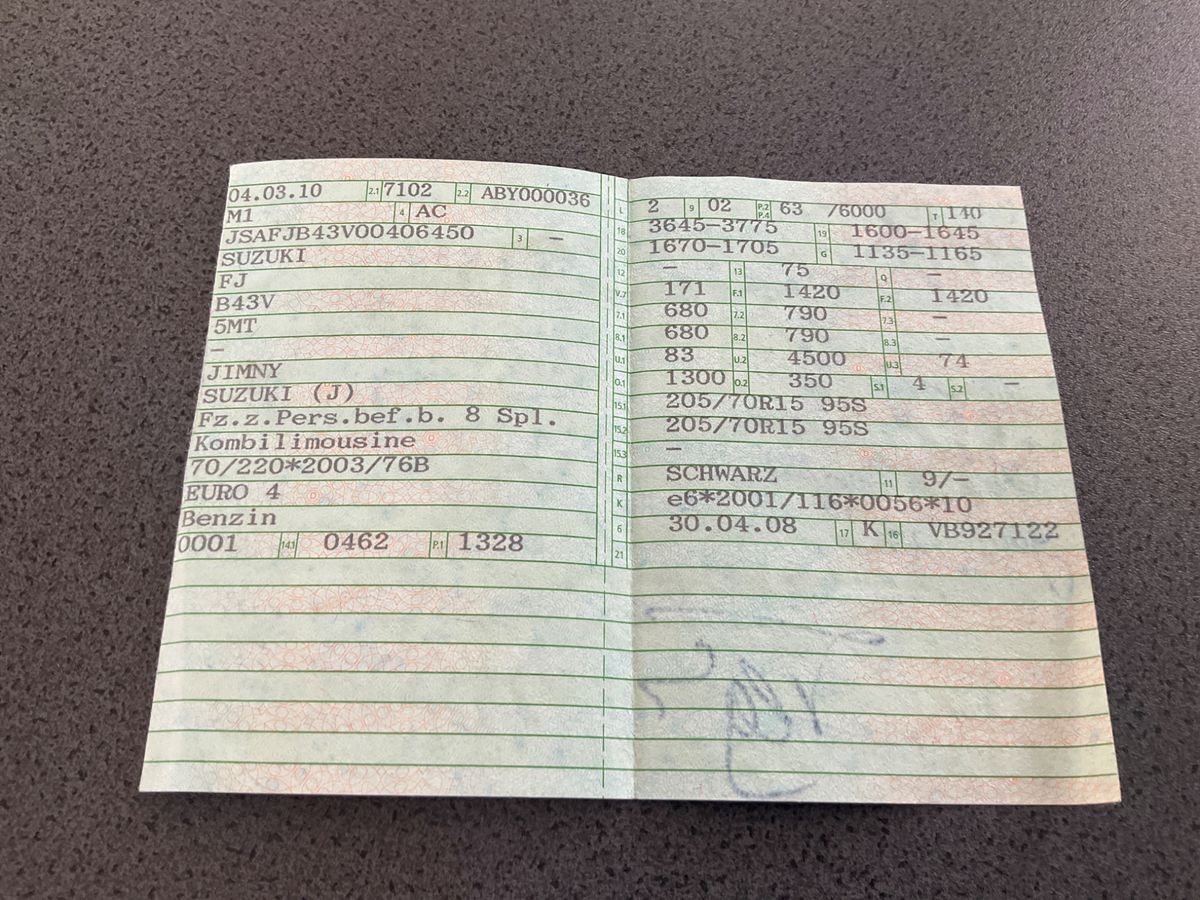 04.03.10 2.1 7102 2.2 ABY000036
M1 4 AC
JSAFJB43V00406450 3 –
SUZUKI
FJ
B43V
5MT
–
JIMNY
SUZUKI (J)
Fz.z.Pers.bef.b. 8 Spl.
Kombilimousine
70/220*2003/76B
EURO 4
Benzin
0001 14.1 0462 P.1 1328
L 2 9 02 P.2 P.4 63 /6000 T 140
18 3645–3775 19 1600–1645
20 1670–1705 G 1135–1165
12 – 13 75 Q –
V.7 171 F.1 1420 F.2 1420
7.1 680 7.2 790 7.3 –
8.1 680 8.2 790 8.3 –
U.1 83 U.2 4500 U.3 74
O.1 1300 O.2 350 S.1 4 S.2 –
15.1 205/70R15 95S
15.2 205/70R15 95S
15.3 –
R SCHWARZ 11 9/–
K e6*2001/116*0056*10
6 30.04.08 17 K 16 VB927122
21